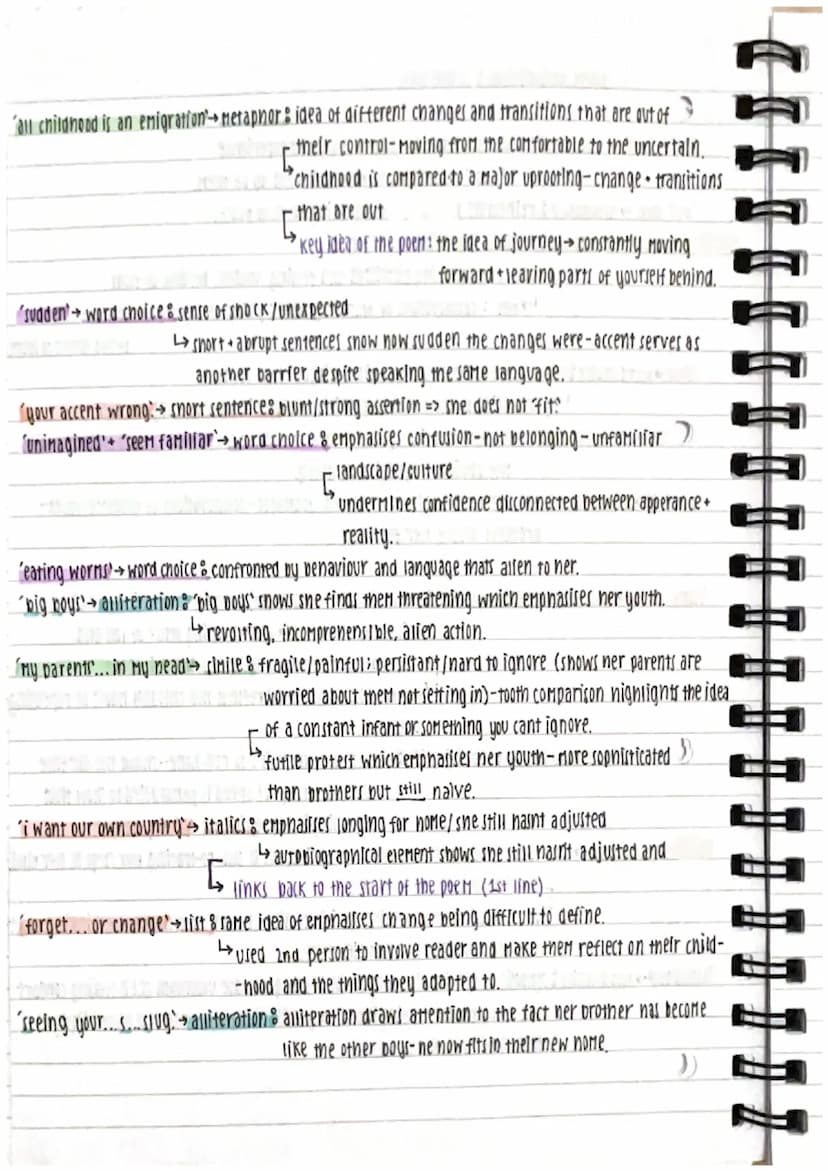 'all childhood is an emigration' → metaphor: idea of different changes and transitions that are out of
their control - moving from the comfortable to the uncertain.
↳ childhood is compared to a major uprooting - change + transitions
that are out
↳ key idea of the poem: the idea of journey → constantly moving
forward + leaving parts of yourself behind.
'sudden' → word choice: sense of shock/unexpected
↳ short + abrupt sentences show how sudden the changes were - accent serves as
another barrier despite speaking the same language.
'your accent wrong.' → short sentence: blunt/strong assertion => she does not 'fit.'
'unimagined' + 'seem familiar' → word choice: emphasises confusion - not belonging - unfamiliar
landscape/culture
↳ undermines confidence disconnected between apperance +
reality.
'eating worms' → word choice: confronted by behaviour and language thats alien to her.
'big boys' → alliteration: 'big boys' shows she finds them threatening which emphasises her youth.
↳ revolting, incomprehensible, alien action.
'my parents'... in my head' → simile: fragile/painful; persistant/hard to ignore (shows her parents are
worried about them not setting in) - tooth comparison highlights the idea
of a constant infant or something you cant ignore.
↳ futile protest which emphasises her youth - more sophisticated
than brothers but still naive.
'i want our own country' → italics: emphasises longing for home/she still hasnt adjusted
↳ autobiographical element shows she still hasnt adjusted and
↳ links back to the start of the poem (1st line)
'forget... or change' → list: same idea of emphasises change being difficult to define.
↳ used 2nd person to involve reader and make them reflect on their child-
-hood and the things they adapted to.
'seeing your...s...slug.' → alliteration: alliteration draws attention to the fact her brother has become
like the other boys - he now fits in their new home.